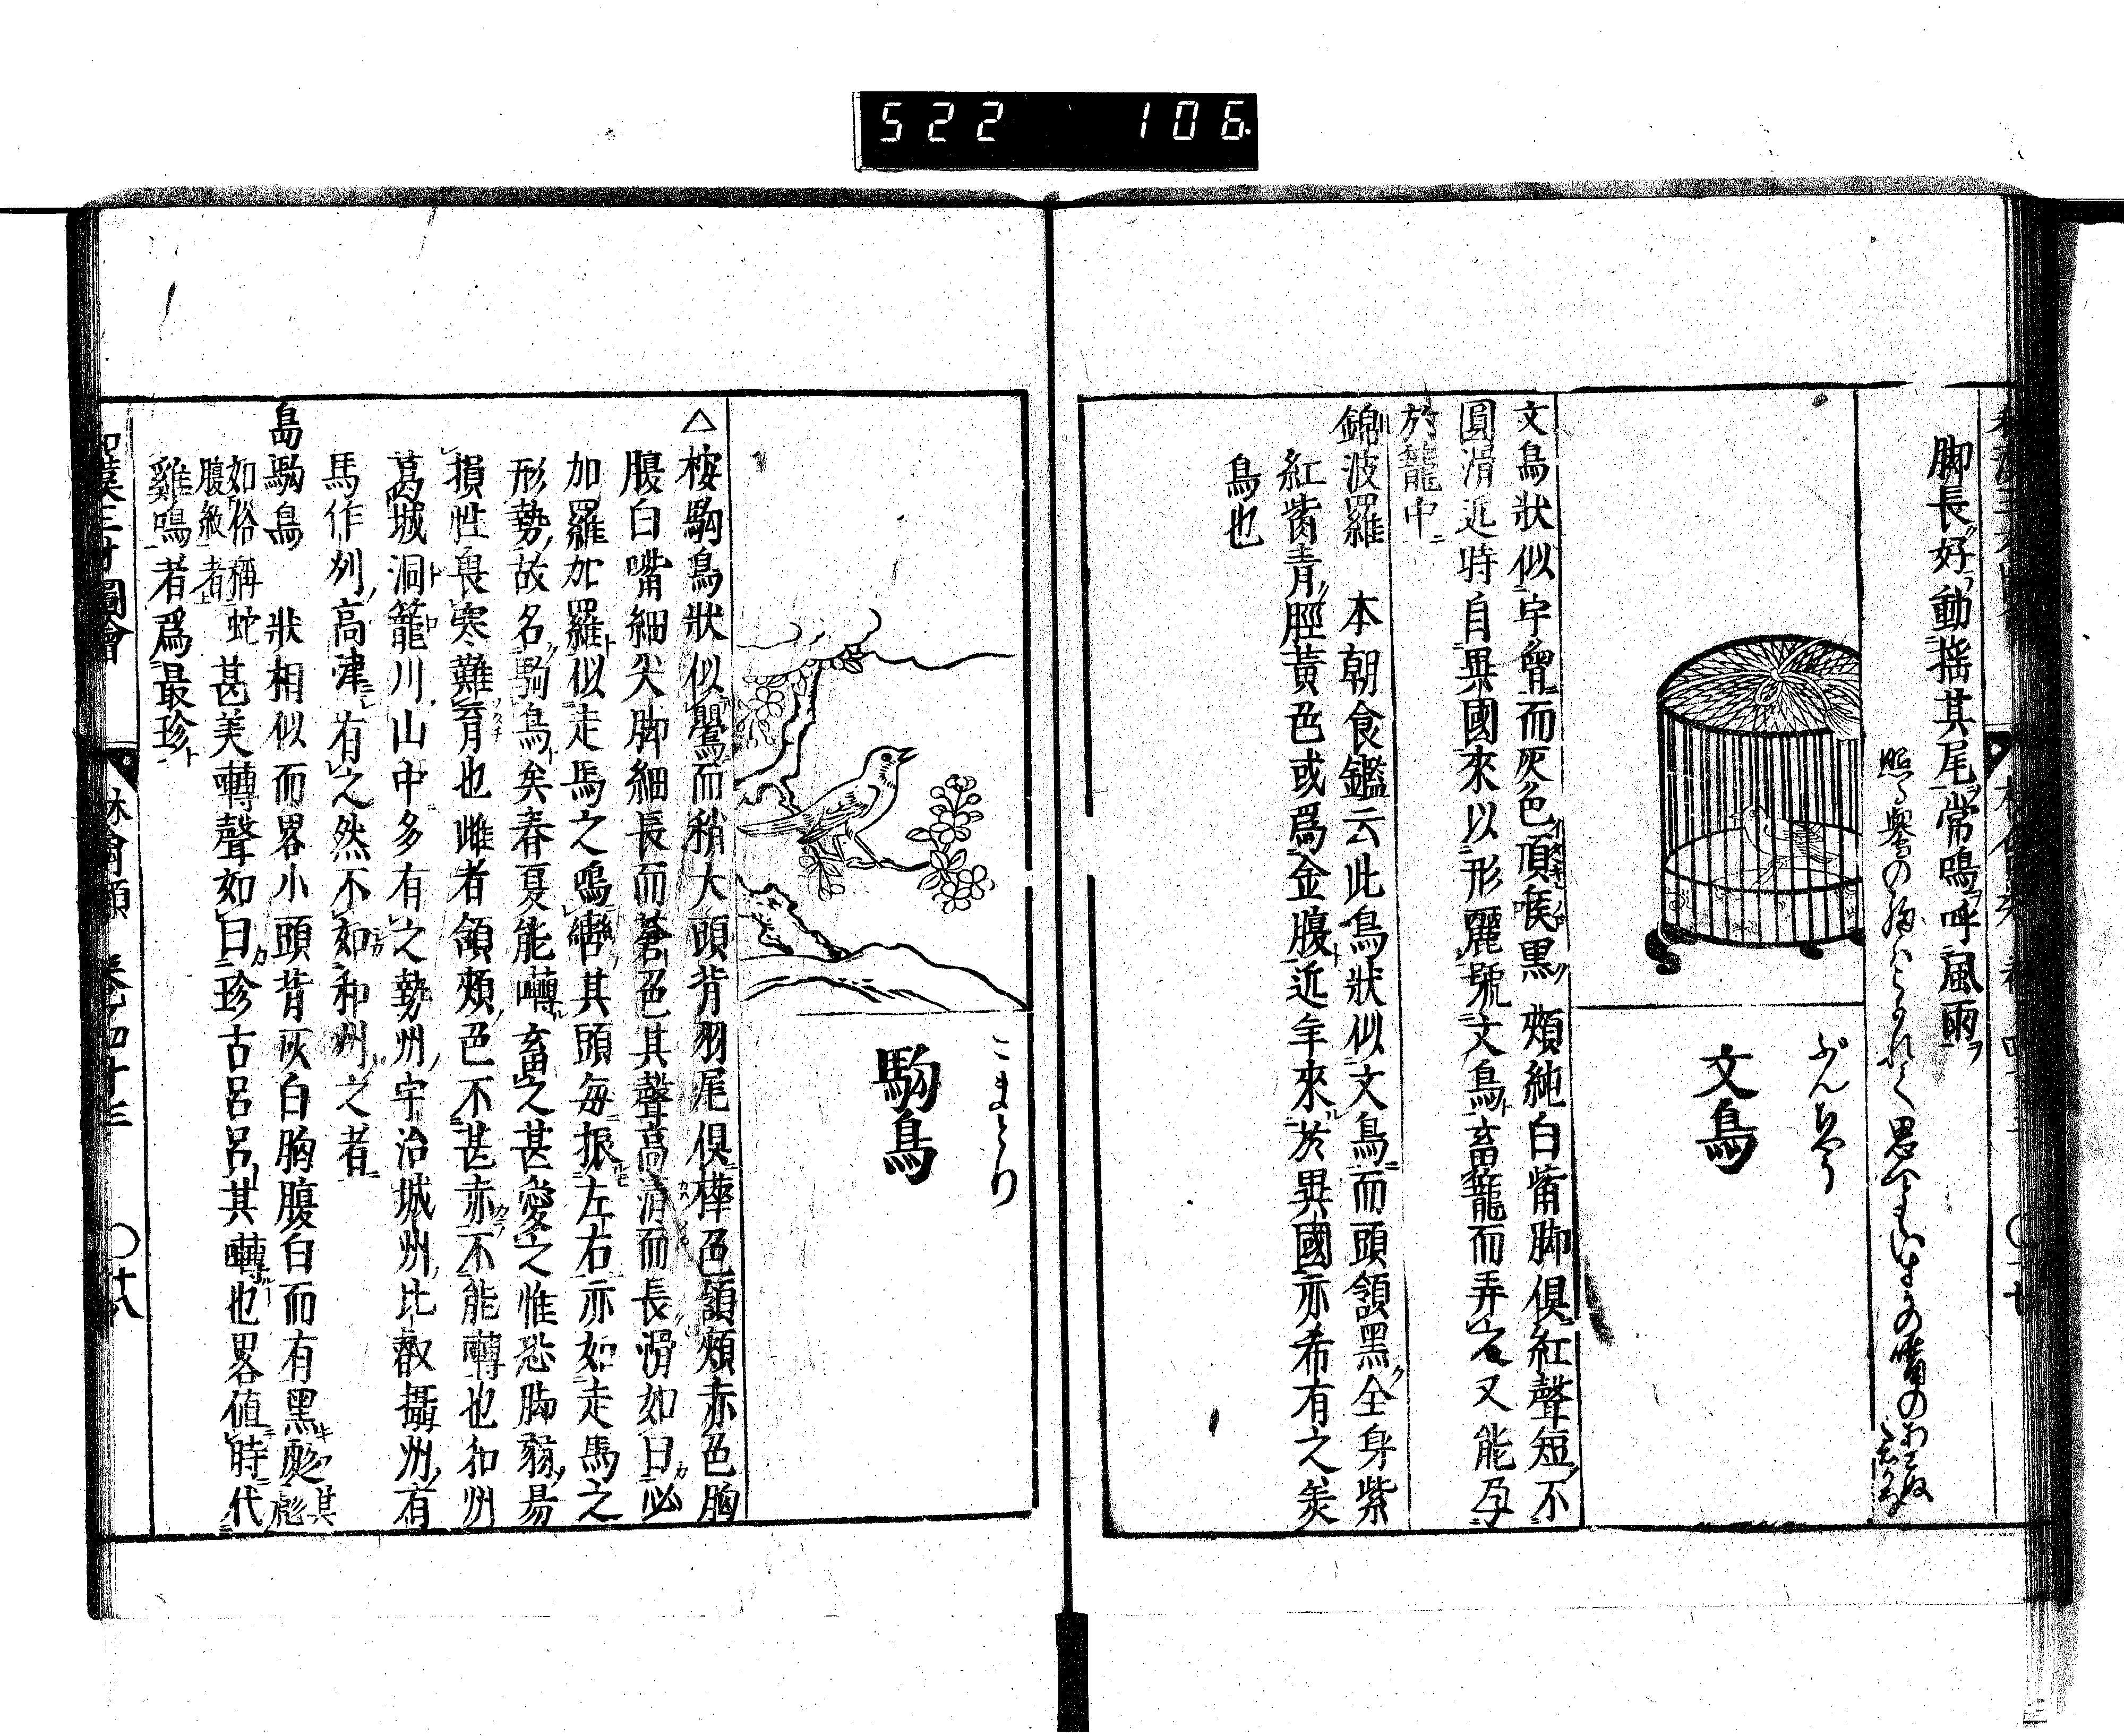 522 106
脚長好動揺其尾常鳴呼風雨
ぶんちやう
文鳥
文鳥狀似宇曾而灰色頂喉黒頰純白觜脚俱紅聲短不
圓滑近時自異國來以形麗號文鳥畜籠而弄之又能孕
於籠中
錦波羅 本朝食鑑云此鳥狀似文鳥而頭頷黑全身紫
紅觜青脛黃色或爲金腹近年來於異國亦希有之矣
鳥也
こまとり
駒鳥
△桉駒鳥狀似鸎而稍大頭背羽尾俱樺色頷頰赤色胸
腹白嘴細尖脚細長而蒼色其聲高清而長滑如曰必
加羅加羅似走馬之鳴轡其頭每振左右亦如走馬之
形勢故名駒鳥矣春夏能囀畜之甚愛之惟恐脚弱易
損性畏寒難育也雌者頷頰色不甚赤不能囀也和州
葛城洞籠川山中多有之勢州宇治城州比叡攝州有
馬作州高津有之然不如和州之者
島駒鳥 狀相似而畧小頭背灰白胸腹白而有黑彪其彪
如俗稱蛇腹紋者甚美囀聲如曰珍古呂呂其囀也畧值時代
雞鳴者爲最珍
和漢三才圖會 林禽類 卷四十三 〇十八